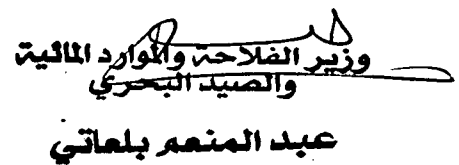 وزير الفلاحة والموارد المائية
والصيد البحري
عبد المنعم بلعاتي